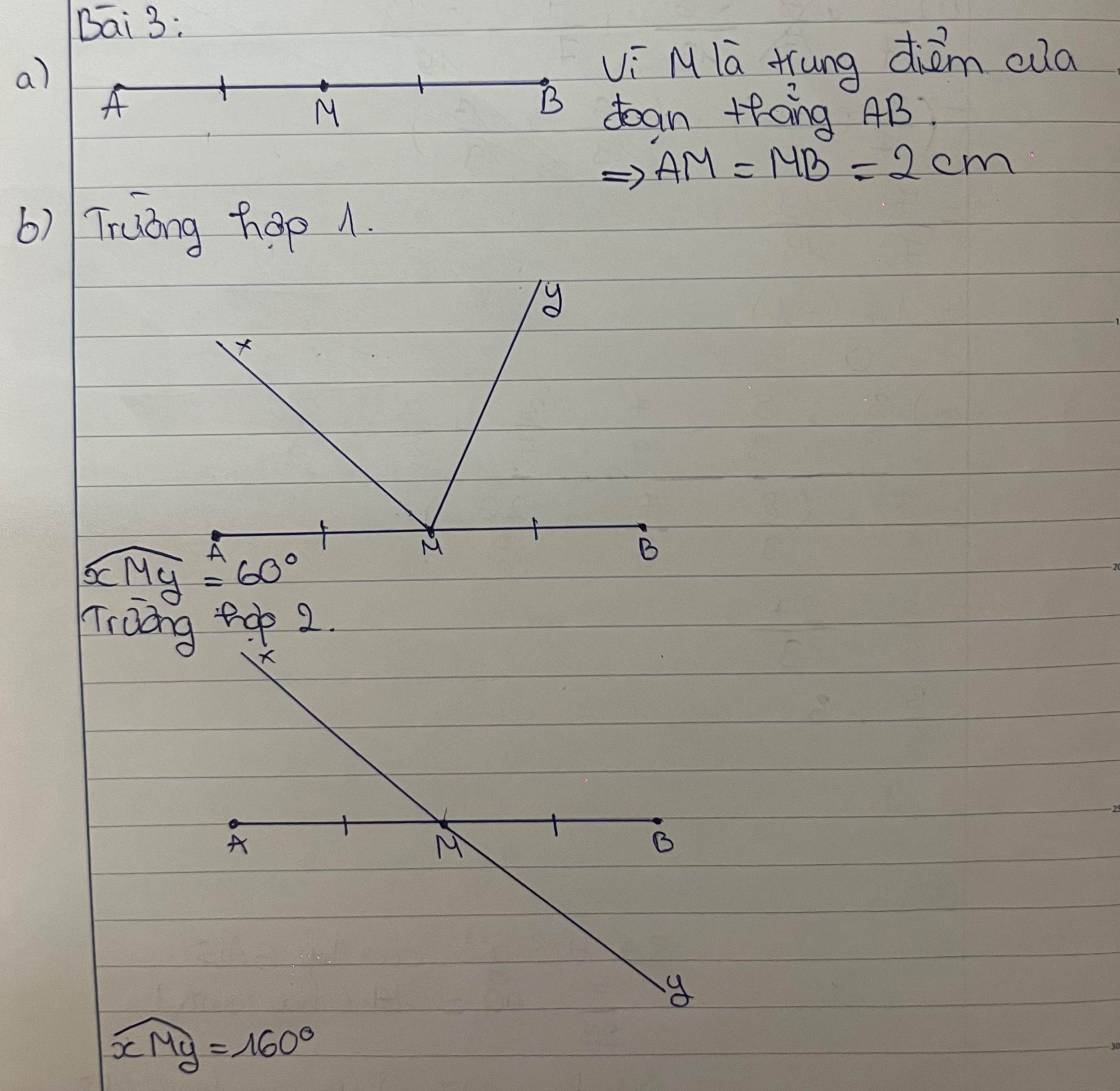 Bài 3:
a)
A M B
Vì M là trung điểm của
đoạn thẳng AB.
=> AM = MB = 2 cm
b) Trường hợp 1.
x y
A M B
xMy = 60°
Trường hợp 2.
x
A M B
y
xMy = 160°
15
20
25
30